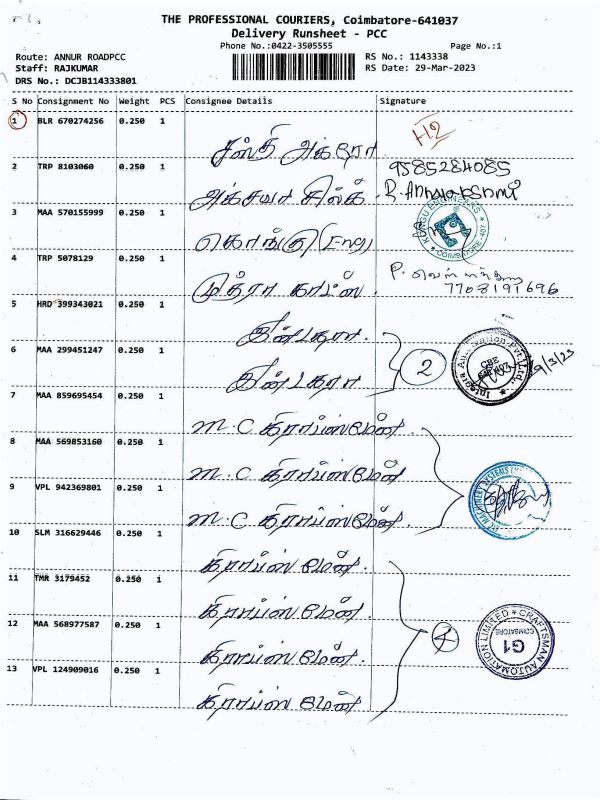 THE PROFESSIONAL COURIERS, Coimbatore-641037
Delivery Runsheet - PCC
Phone No.:0422-3505555 Page No.:1
Route: ANNUR ROADPCC RS No.: 1143338
Staff: RAJKUMAR RS Date: 29-Mar-2023
DRS No.: DCJB114333801
S No Consignment No Weight PCS Consignee Details Signature
1 BLR 670274256 0.250 1
H2
சக்தி அக்ரோ
9585284085
2 TRP 8103060 0.250 1
அக்சயா சில்க்
3 MAA 570155999 0.250 1
KONGU ENGINEERS
COIMBATORE
கொங்கு (Eng)
4 TRP 5078129 0.250 1
P.
7708191696
மித்ரா காட்ஸ்
5 HRD 399343021 0.250 1
இன்டகரா
6 MAA 299451247 0.250 1
2
Integra Automation Pvt. Ltd.,
CBE
இன்டகரா
7 MAA 859695454 0.250 1
M.C கிராப்ஸ்மேன்.
8 MAA 569853160 0.250 1
M.C கிராப்ஸ்மேன்
9 VPL 942369801 0.250 1
M.C கிராப்ஸ்மேன்.
10 SLM 316629446 0.250 1
கிராப்ஸ்மேன்.
11 TMR 3179452 0.250 1
கிராப்ஸ்மேன்.
12 MAA 568977587 0.250 1
4
CRAFTSMAN AUTOMATION LIMITED
COIMBATORE
G1
கிராப்ஸ்மேன்.
13 VPL 124909016 0.250 1
கிராப்ஸ்மேன்